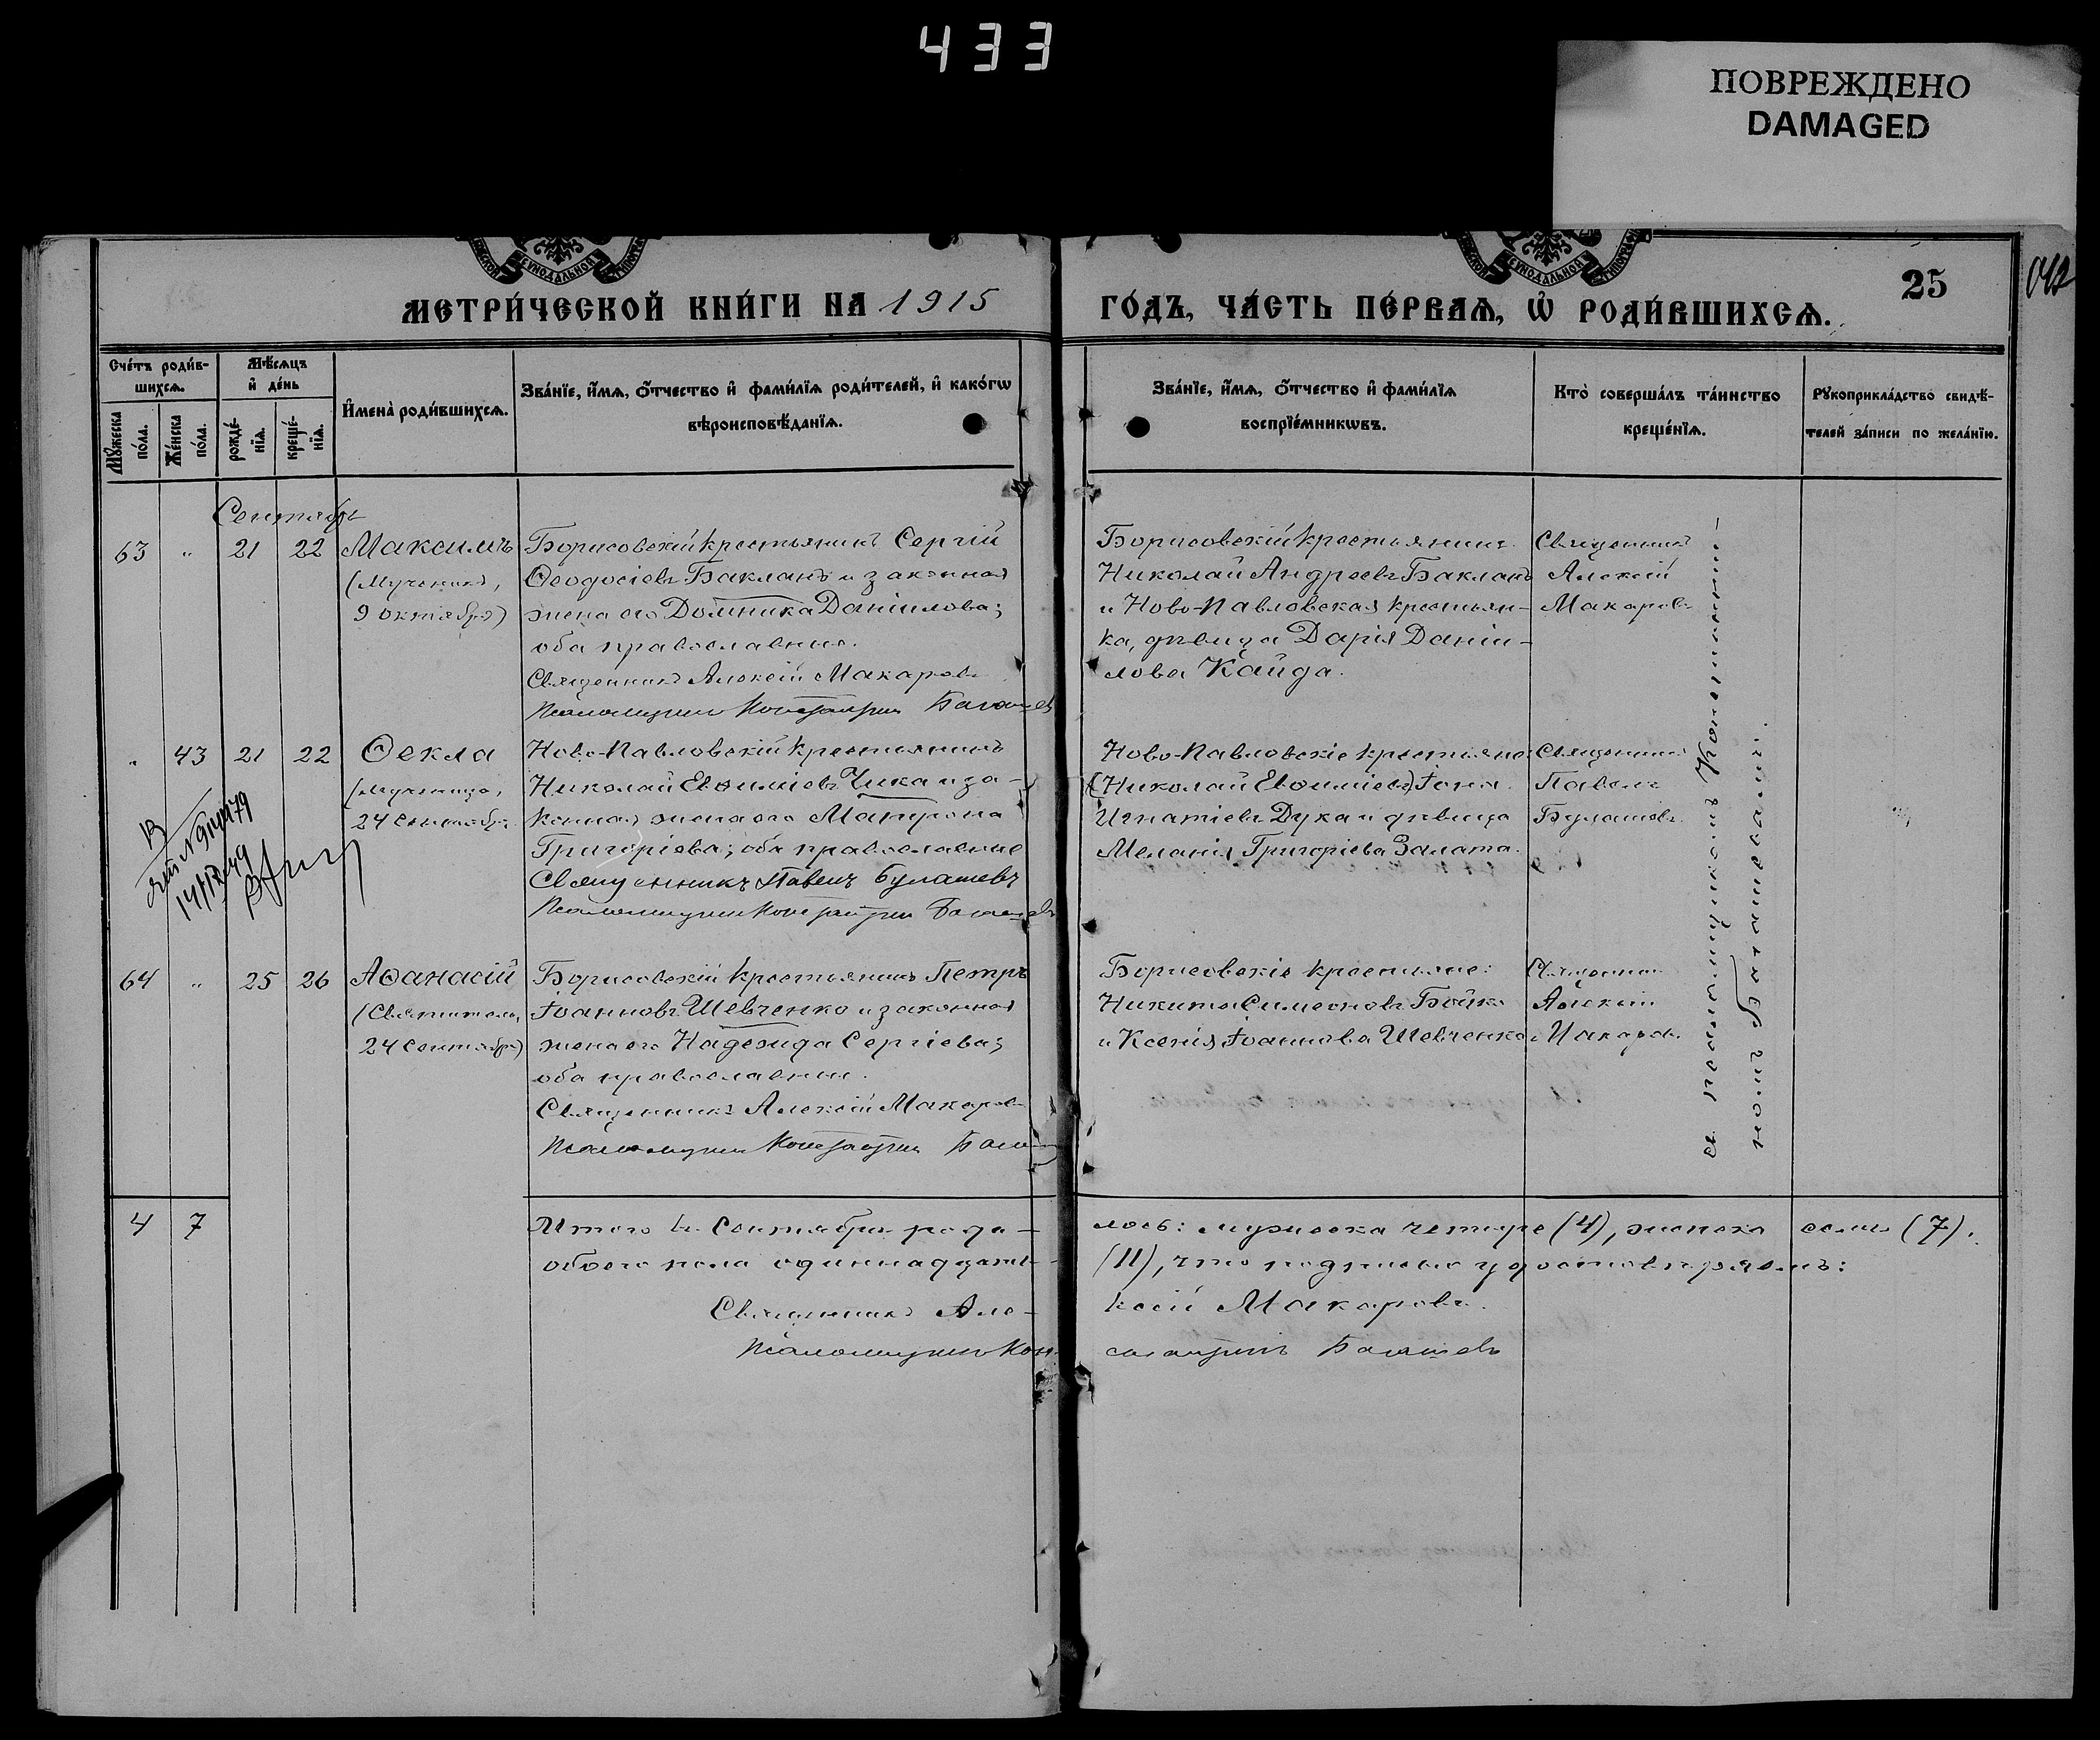 433
ПОВРЕЖДЕНО
DAMAGED
МЕТРИ́ЧЕСКОЙ КНИ́ГИ НА 1915
ГО́ДЪ, ЧА́СТЬ ПЕ́РВАѦ, Ѡ҆ РОДИ́ВШИХСѦ.
25
Сче́тъ роди́в-
шихсѧ.
Мѣ́сѧцъ
и҆ де́нь
Мꙋ́жеска по́ла.
Же́нска по́ла.
рожде́-нїѧ.
креще́-нїѧ.
И҆мена̀ роди́вшихсѧ.
Зва́нїе, и҆́мѧ, ѻ҆́тчество и҆ фами́лїѧ роди́телей, и҆ како́гѡ
вѣроисповѣ́данїѧ.
Зва́нїе, и҆́мѧ, ѻ҆́тчество и҆ фами́лїѧ
воспрїе́мникѡвъ.
Кто̀ соверша́лъ та́инство
креще́нїѧ.
Рꙋкоприкла́дство свидѣ́-
телей за́писи по жела́нїю.
Сентябрь
63 " 21 22 Максимъ
(Мученика,
9 октября)
Борисовскій крестьянинъ Сергій
Ѳеодосіевъ Бакланъ и законная
жена его Домника Даніилова;
оба православные.
Священникъ Алексій Макаровъ
Псаломщикъ Константинъ
Борисовскій крестьянинъ
Николай Андреевъ Бакланъ
и Ново-Павловская крестьян-
ка, дѣвица Дарія Даніи-
лова Кайда.
Священникъ
Алексій
Макаровъ
" 43 21 22 Ѳекла
(мученица,
24 сентября
Ново-Павловскій крестьянинъ
Николай Евѳиміевъ Чика и за-
конная жена его Матрона
Григоріева; оба православные
Священникъ Павелъ Булашевъ
Псаломщикъ Константинъ
Ново-Павловскіе крестьяне:
(Николай Евѳиміевъ) Іона
Игнатіевъ Дука и дѣвица
Меланія Григоріева Залата.
Священникъ
Павелъ
Булашевъ
64 " 25 26 Аѳанасій
(Святителя,
24 сентября)
Борисовскій крестьянинъ Петръ
Іоанновъ Шевченко и законная
жена его Надежда Сергіева;
оба православные.
Священникъ Алексій Макаровъ
Псаломщикъ Константинъ
Борисовскіе крестьяне:
Никита Симеоновъ Бойко
и Ксенія Іоаннова Шевченко
Священникъ
Алексій
Макаровъ
съ псаломщикомъ Константи-
номъ
4 7
Итого въ Сентябрѣ роди-
лось: мужеска четыре (4), женска семь (7),
обоего пола одиннадцать
(11), что подписью удостовѣряемъ:
Священникъ Але-
ксій Макаровъ.
Псаломщикъ Кон-
стантинъ